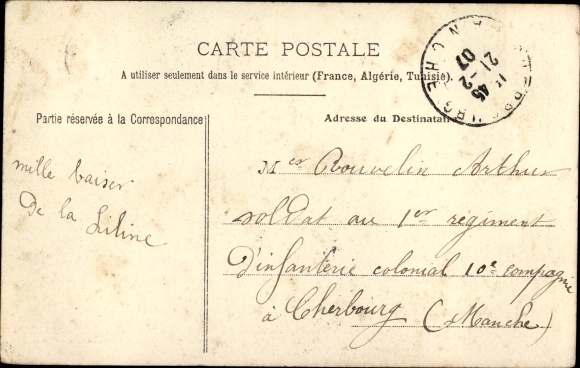 CARTE POSTALE
A utiliser seulement dans le service intérieur (France, Algérie, Tunisie).
Partie réservée à la Correspondance
Adresse du Destinataire
mille baiser
de la Liline
Mer Rouvelin Arthur
soldat au 1er regiment
d'infanterie colonial 10e compagnie
à Cherbourg (Manche)
CHERBOURG
MANCHE
11 45
21 - 2
07